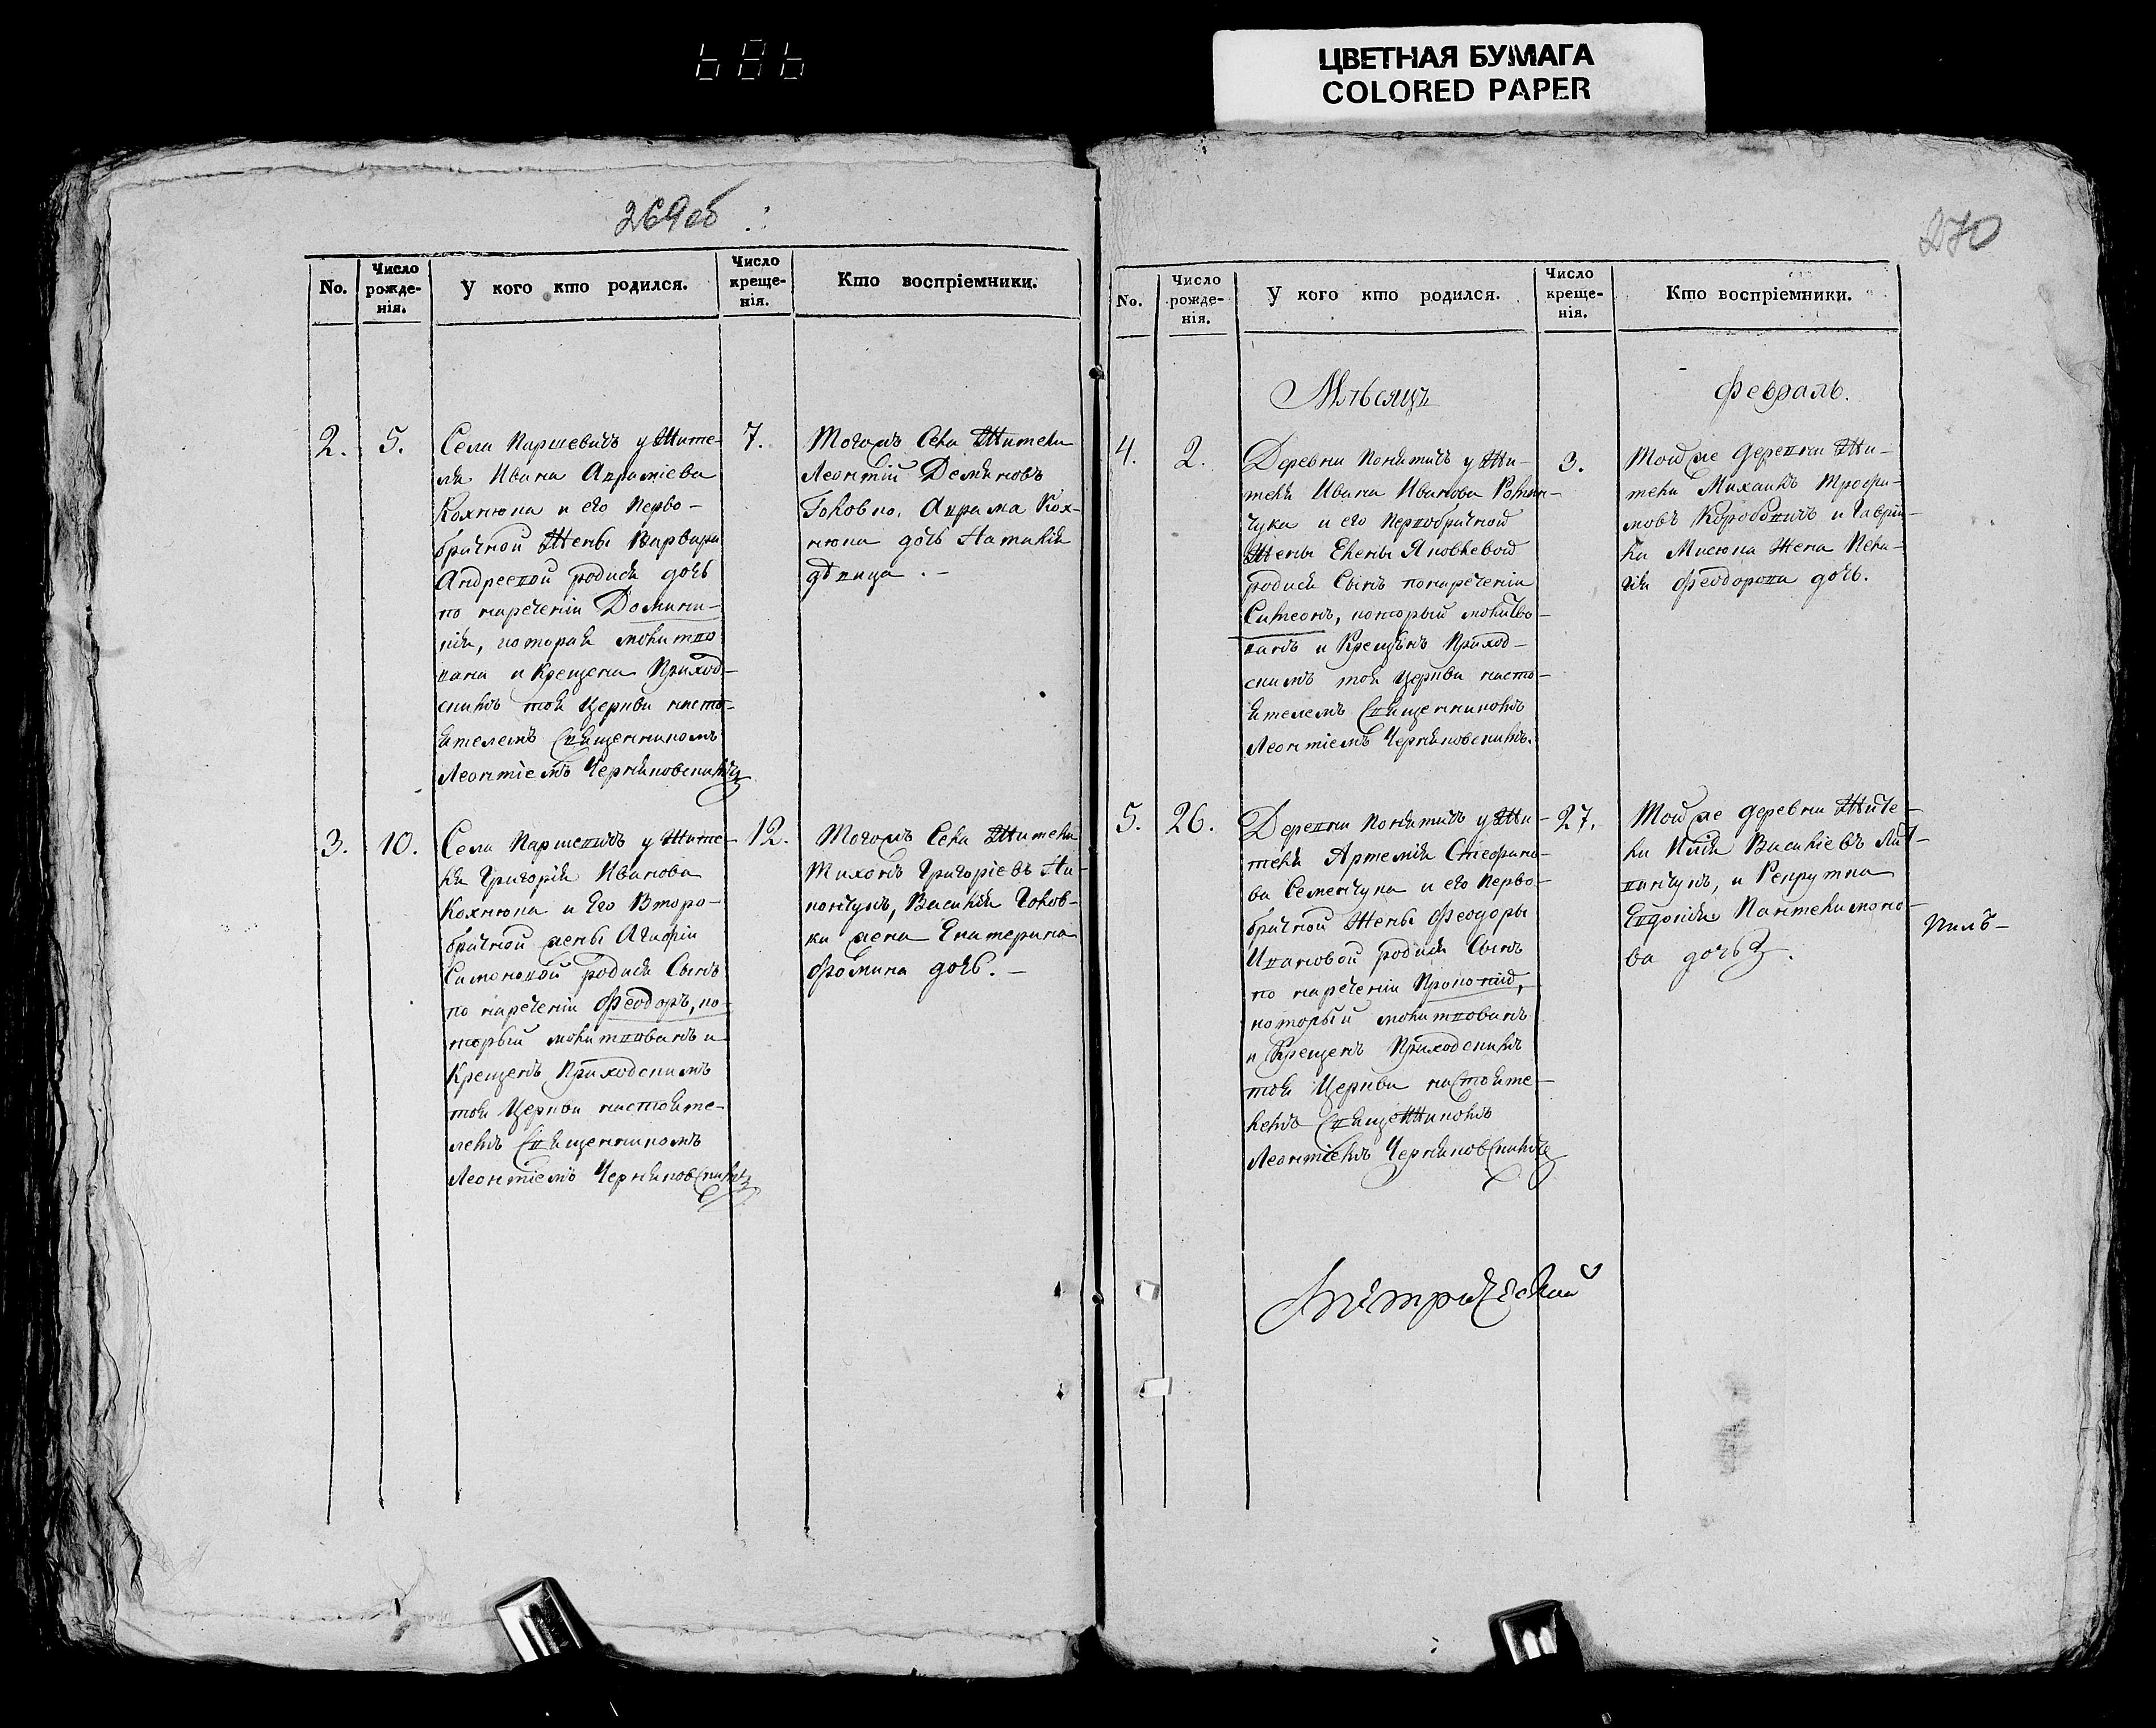 686
ЦВЕТНАЯ БУМАГА
COLORED PAPER
269об
No.
Число рожде-нія.
У кого кто родился.
Число креще-нія.
Кто воспріемники.
2.
5.
Села Паршевичъ у Жите-
ля Ивана Авраміева
Кохнюка и его перво-
брачной Жены Варвары
Андреевой родися дочь
по нареченіи Домини-
кія, которая молитво
вана и Крещена Приход-
скимъ тоя Церкви насто-
ятелемъ Священникомъ
Леонтіемъ Черняковскимъ
7.
Тогожъ Села Житель
Леонтій Демяновъ
Головко, Аврама Кох-
нюка дочь Наталія
дѣвица. –
3.
10.
Села Паршевичъ у Жите-
ля Григорія Иванова
Кохнюка и Его Второ-
брачной жены Агафіи
Симоновой родися Сынъ
по нареченіи Феодоръ, ко-
торый молитвованъ и
Крещенъ Приходскимъ
тоя Церкви настояте-
лемъ Священникомъ
Леонтіемъ Черняковскимъ
12.
Тогожъ Села Житель
Тихонъ Григоріевъ
Василія Голов-
ки жена Екатерина
Фомина дочь. –
270
No.
Число рожде-нія.
У кого кто родился.
Число креще-нія.
Кто воспріемники.
Мѣсяцъ
Февраль.
4.
2.
Деревни Понятичъ у Жи-
теля Ивана Иванова
и его Первобрачной
Жены Елены Яковлевой
родися Сынъ по нареченіи
Симеонъ, который молитво-
ванъ и Крещенъ Приход-
скимъ тоя Церкви насто-
ятелемъ Священникомъ
Леонтіемъ Черняковскимъ.
3.
Тойже Деревни Жи-
тель Михаилъ Трофи-
мовъ и Гаврiи-
ла Мисюка Жена Пела-
гія Феодорова дочь.
5.
26.
Деревни Понятичъ у Жи-
теля Артемія Стефано-
ва Семенчука и его перво-
брачной Жены Феодоры
Ивановой родися Сынъ
по нареченіи Прокопій,
который молитвованъ
и Крещенъ Приходскимъ
тоя Церкви настояте-
лемъ Священникомъ
Леонтіемъ Черняковскимъ
27.
Тойже деревни Жите-
ль Илія Василіевъ
и Рекрутка
Евдокія Пантелимоно-
ва дочь.